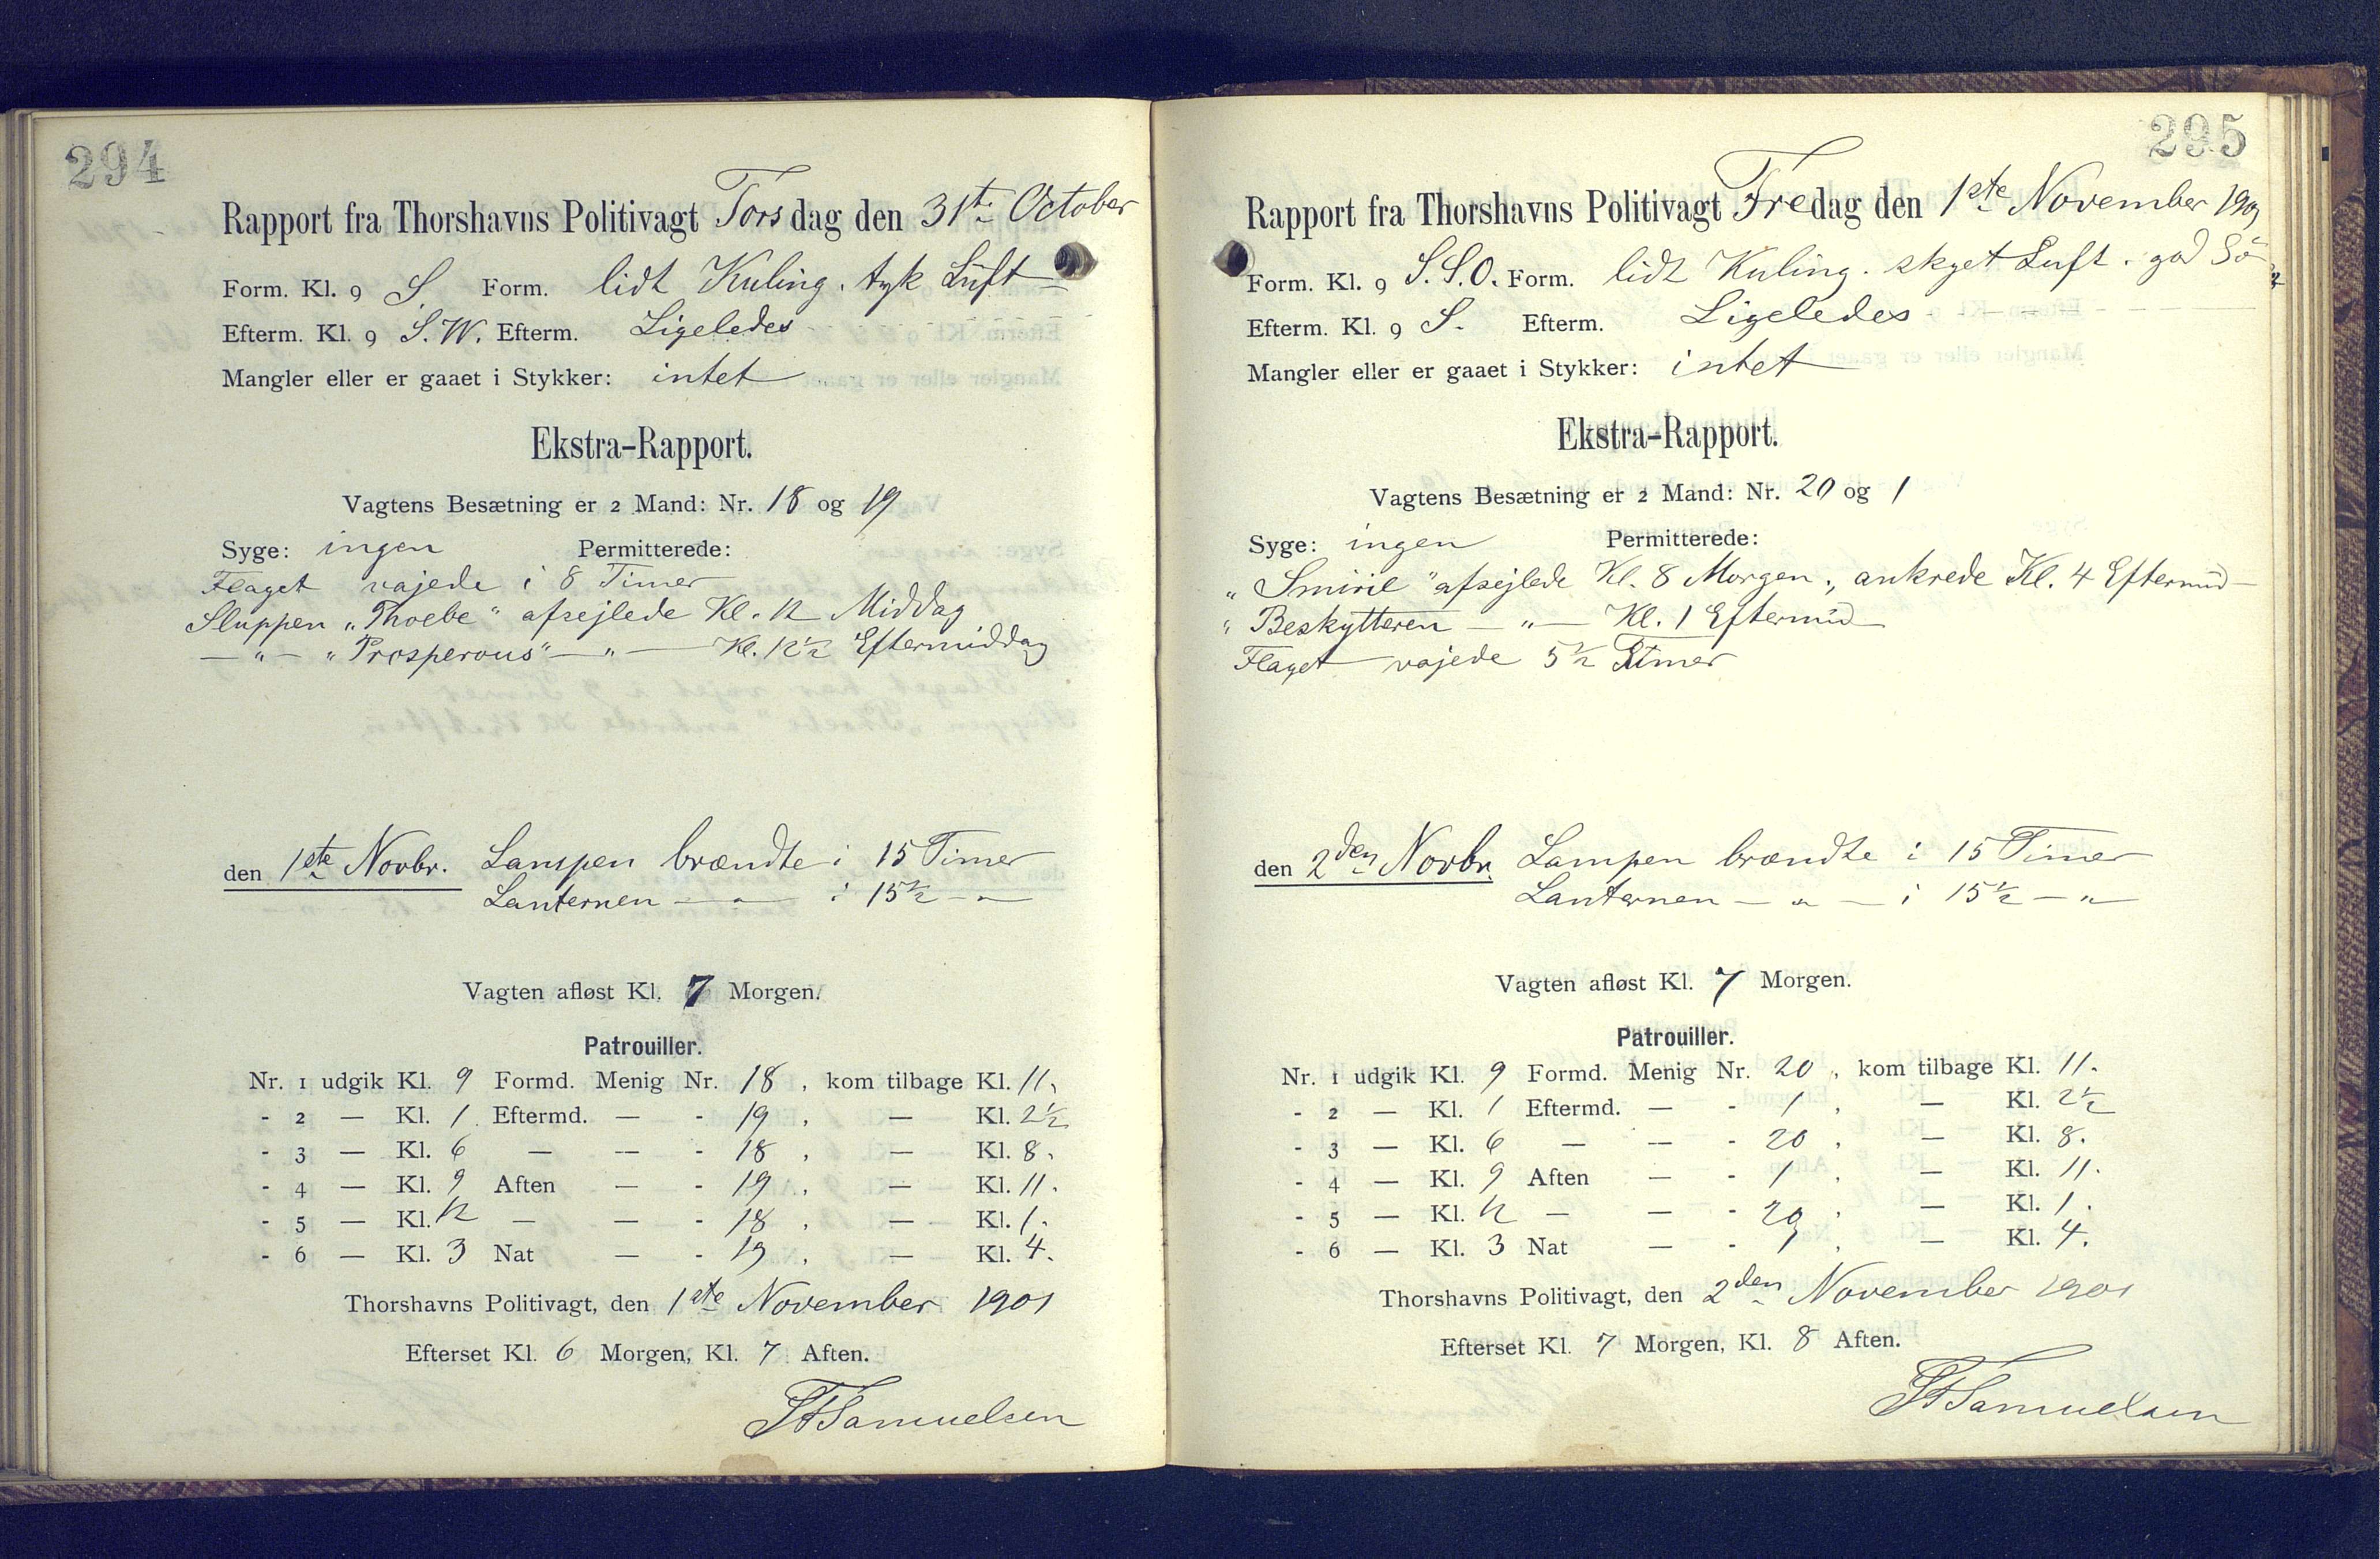 294
Rapport fra Thorshavns Politivagt Torsdag den 31te October
Form. Kl. 9 S Form. lidt Kuling. tyk Luft
Efterm. Kl. 9 S.W. Efterm. Ligeledes
Mangler eller er gaaet i Stykker: intet
Ekstra-Rapport.
Vagtens Besætning er 2 Mand: Nr. 18 og 19
Syge: ingen Permitterede:
Flaget vajede i 8 Timer
Sluppen „Phoebe“ afsejlede Kl. 12 Middag
— „ — „Prosperous“ — „ — Kl. 12½ Eftermiddag
den 1ste Novbr. Lampen brændte i 15 Timer
Lanternen — „ — i 15½ — „ —
Vagten afløst Kl. 7 Morgen.
Patrouiller.
Nr. 1 udgik Kl. 9 Formd. Menig Nr. 18, kom tilbage Kl. 11.
- 2 — Kl. 1 Eftermd. — - 19, — Kl. 2½
- 3 — Kl. 6 — — - 18, — Kl. 8.
- 4 — Kl. 9 Aften — - 19, — Kl. 11.
- 5 — Kl. 12 — — - 18, — Kl. 1.
- 6 — Kl. 3 Nat — - 19, — Kl. 4.
Thorshavns Politivagt, den 1ste November 1901
Efterset Kl. 6 Morgen, Kl. 7 Aften.
Samuelsen
295
Rapport fra Thorshavns Politivagt Fredag den 1ste November 1901
Form. Kl. 9 S.S.O. Form. lidt Kuling. skyet Luft. god Sö
Efterm. Kl. 9 S. Efterm. Ligeledes
Mangler eller er gaaet i Stykker: intet
Ekstra-Rapport.
Vagtens Besætning er 2 Mand: Nr. 20 og 1
Syge: ingen Permitterede:
„Smiril“ afsejlede Kl. 8 Morgen., ankrede Kl. 4 Eftermid—
„Beskytteren — „ — Kl. 1 Eftermid—
Flaget vajede 5½ Timer
den 2den Novbr. Lampen brændte i 15 Timer
Lanternen — „ — i 15½ — „ —
Vagten afløst Kl. 7 Morgen.
Patrouiller.
Nr. 1 udgik Kl. 9 Formd. Menig Nr. 20, kom tilbage Kl. 11.
- 2 — Kl. 1 Eftermd. — - 1, — Kl. 2½
- 3 — Kl. 6 — — - 20, — Kl. 8.
- 4 — Kl. 9 Aften — - 1, — Kl. 11.
- 5 — Kl. 12 — — - 20, — Kl. 1.
- 6 — Kl. 3 Nat — - 1, — Kl. 4.
Thorshavns Politivagt, den 2den November 1901
Efterset Kl. 7 Morgen, Kl. 8 Aften.
Samuelsen